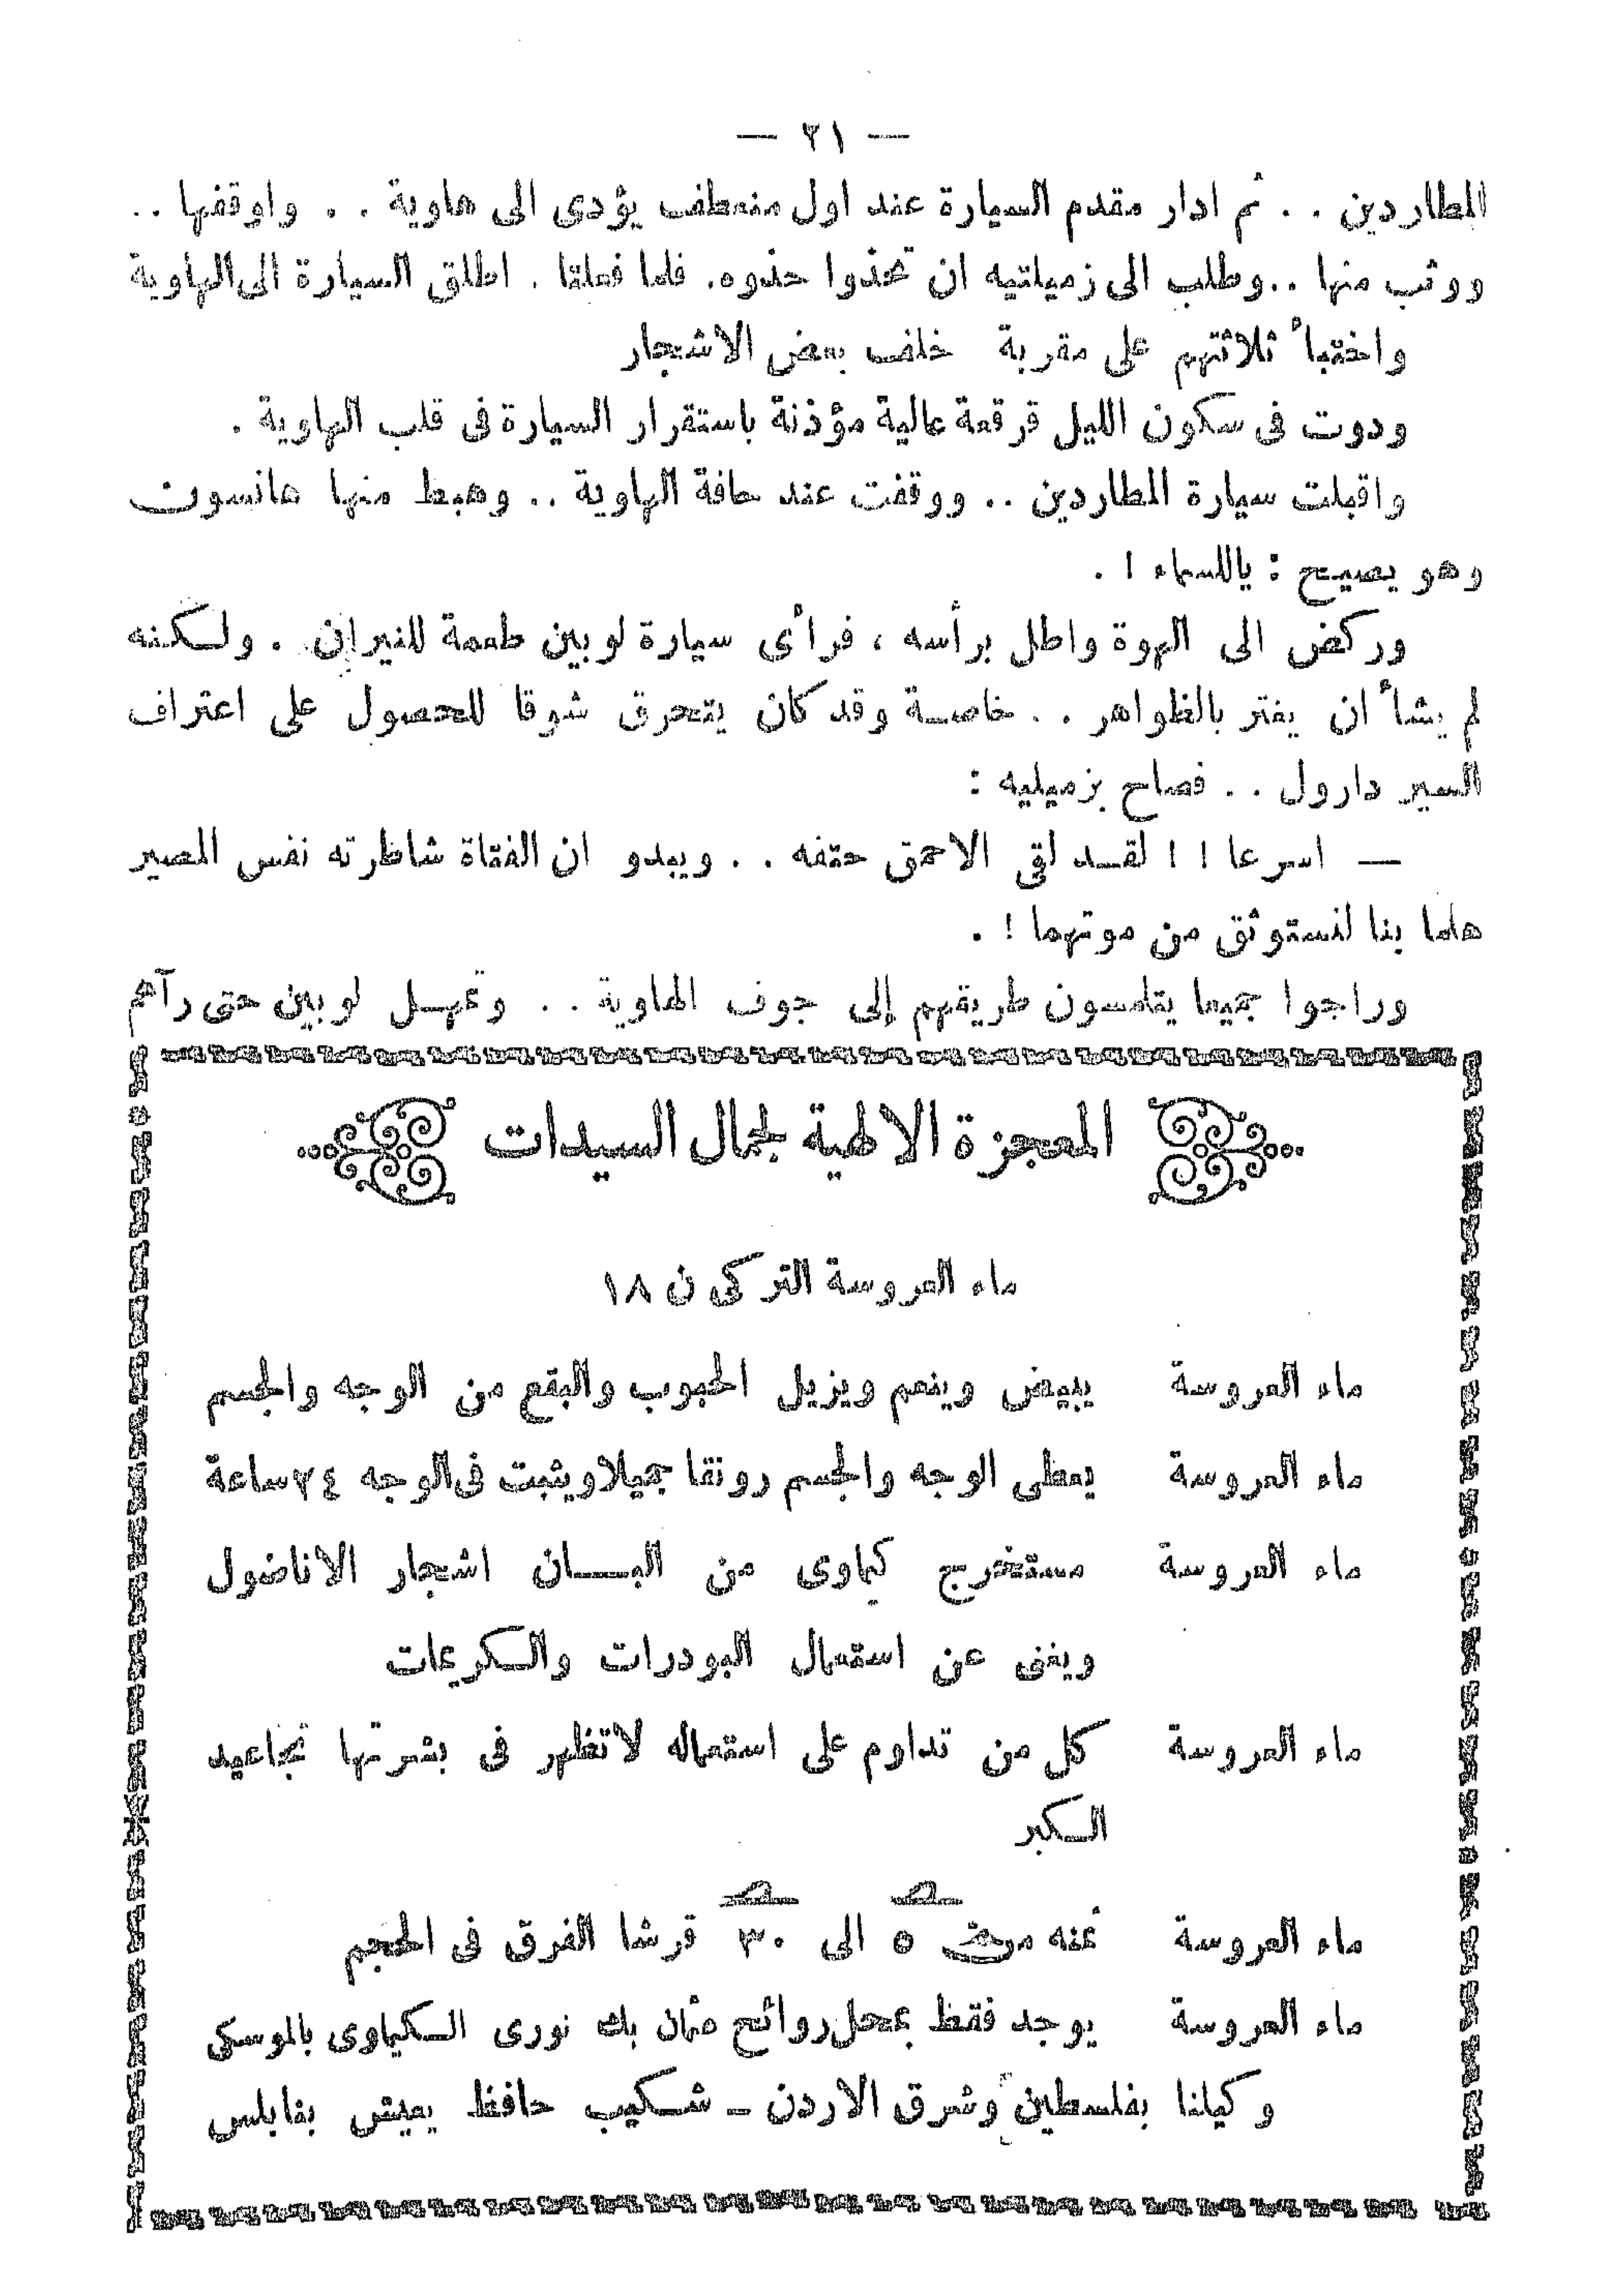 — ٢١ —
المطاردين . . ثم ادار مقدم السيارة عند اول منعطف يؤدى الى هاوية . . واوقفها . .
ووثب منها . . وطلب الى زميلتيه ان تحذوا حذوه . فلما فعلتا . اطلق السيارة الى الهاوية
واختبأ ثلاثتهم على مقربة خلف بعض الاشجار
ودوت فى سكون الليل قرقعة عالية مؤذنة باستقرار السيارة فى قلب الهاوية .
واقبلت سيارة المطاردين . . ووقفت عند حافة الهاوية . . وهبط منها هانسون
وهو يصيح : ياللسماء ! .
وركض الى الهوة واطل برأسه ، فرأى سيارة لوبين طعمة للنيران . ولكنه
لم يشأ ان يغتر بالظواهر . . خاصة وقد كان يتحرق شوقا للحصول على اعتراف
السير دارول . . فصاح بزميليه :
— اسرعا ! ! لقد لقى الاحمق حتفه . . ويبدو ان الفتاة شاطرته نفس المصير
هلما بنا لنستوثق من موتهما ! .
وراحوا جميعا يتلمسون طريقهم إلى جوف الهاوية . . وتمهل لوبين حتى رآهم
المعجزة الالهية لجمال السيدات
ماء العروسة التركى ن ١٨
ماء العروسة يبيض وينعم ويزيل الحبوب والبقع من الوجه والجسم
ماء العروسة يعطى الوجه والجسم رونقا جميلا ويثبت فى الوجه ٢٤ ساعة
ماء العروسة مستخرج كيماوى من البان اشجار الاناضول
ويغنى عن استعمال البودرات والكريمات
ماء العروسة كل من تداوم على استعماله لاتظهر فى بشرتها تجاعيد
الكبر
ماء العروسة ثمنه من ٥ الى ٣٠ قرشا الفرق فى الحجم
ماء العروسة يوجد فقط بمحل روائح عثمان بك نورى الكيماوى بالموسكى
وكيلنا بفلسطين وشرق الاردن – شكيب حافظ يعيش بنابلس